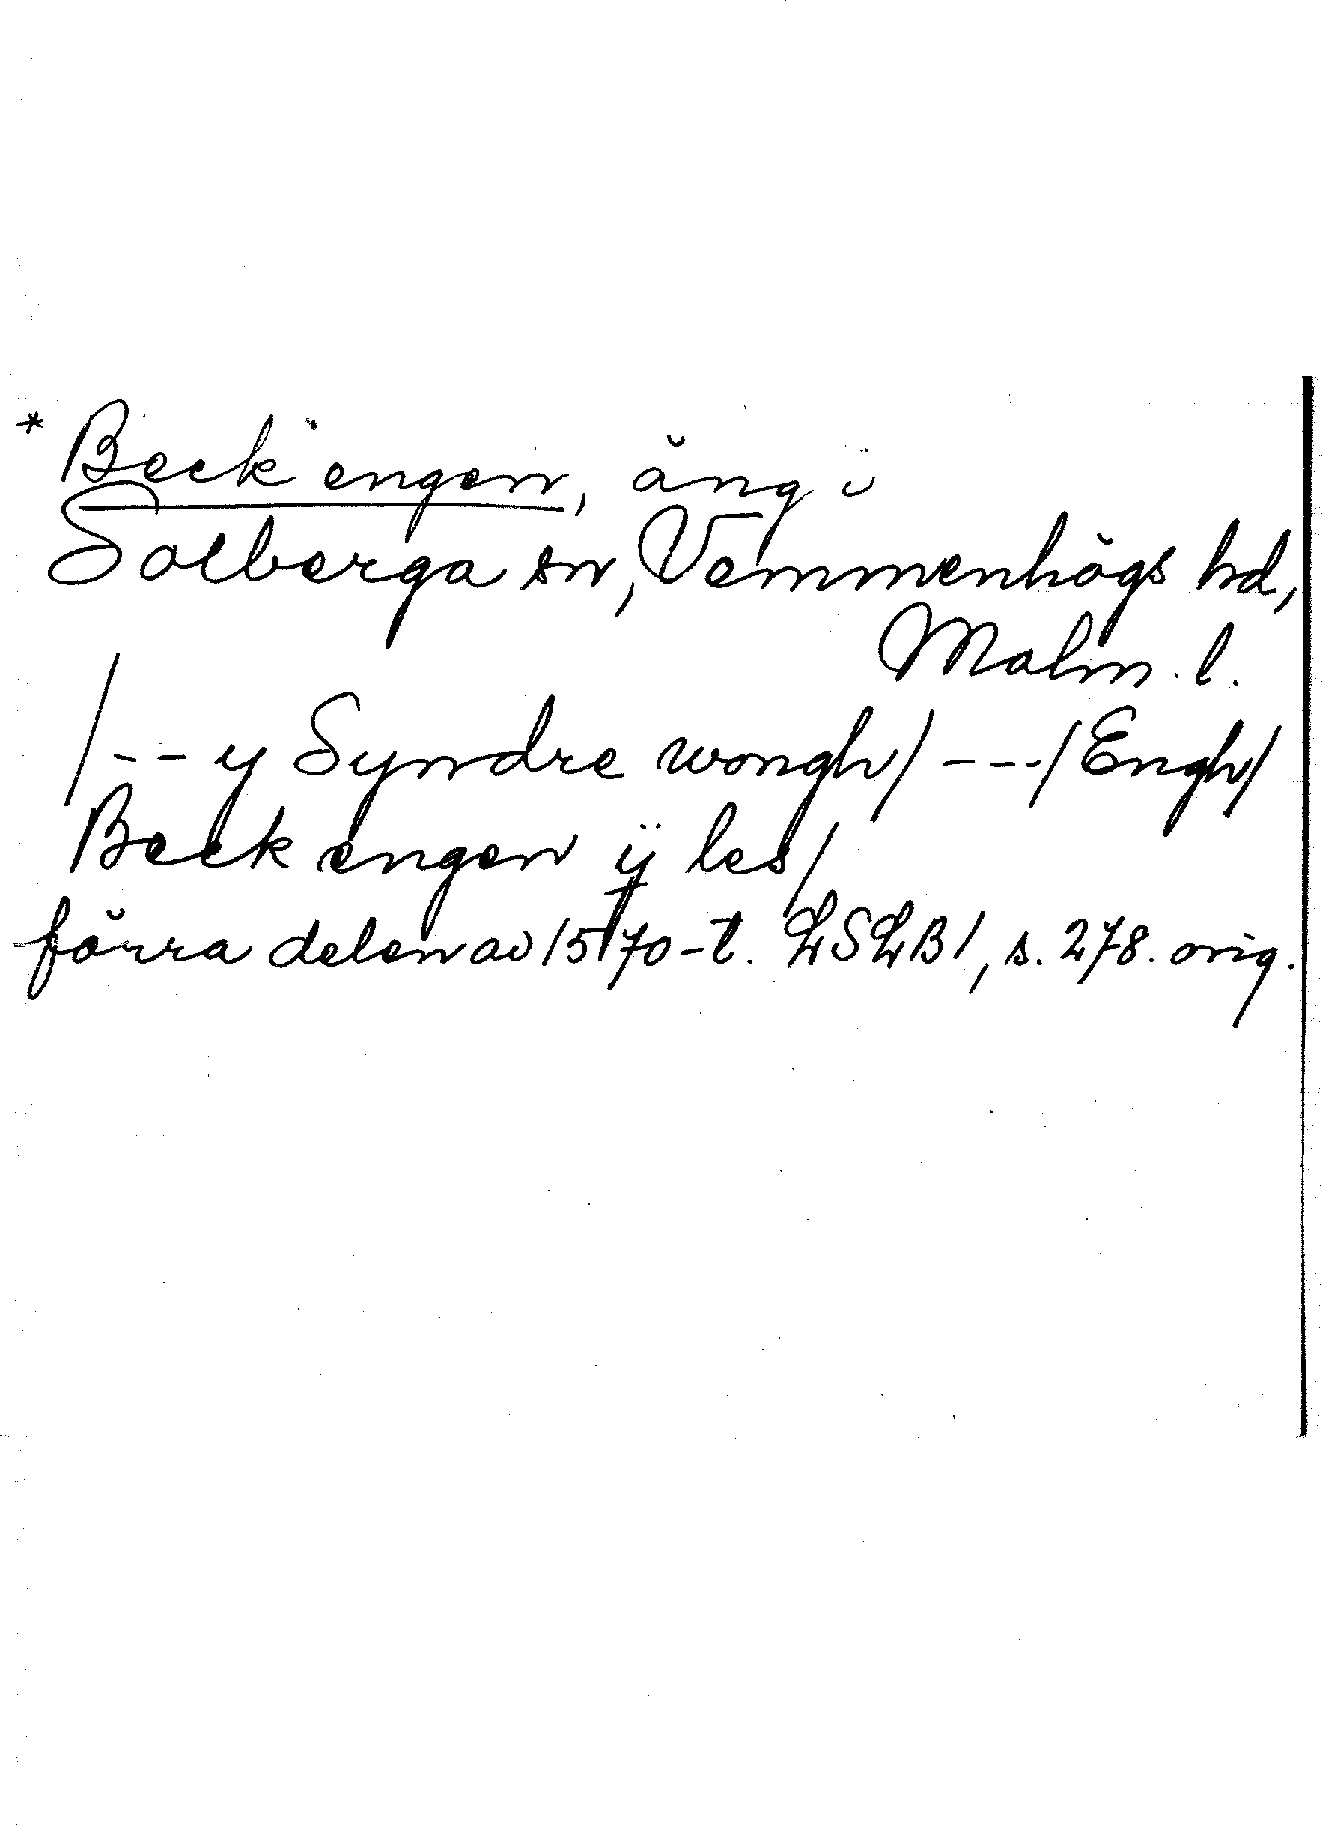 * Beck engen, äng i
Solberga sn, Vemmenhögs hd,
Malm. l.
/-- y Syndre wongh/ ---/Engh/
Beck engen ÿ les/
förra delen av 1570-t. LSLB 1, s. 278. orig.